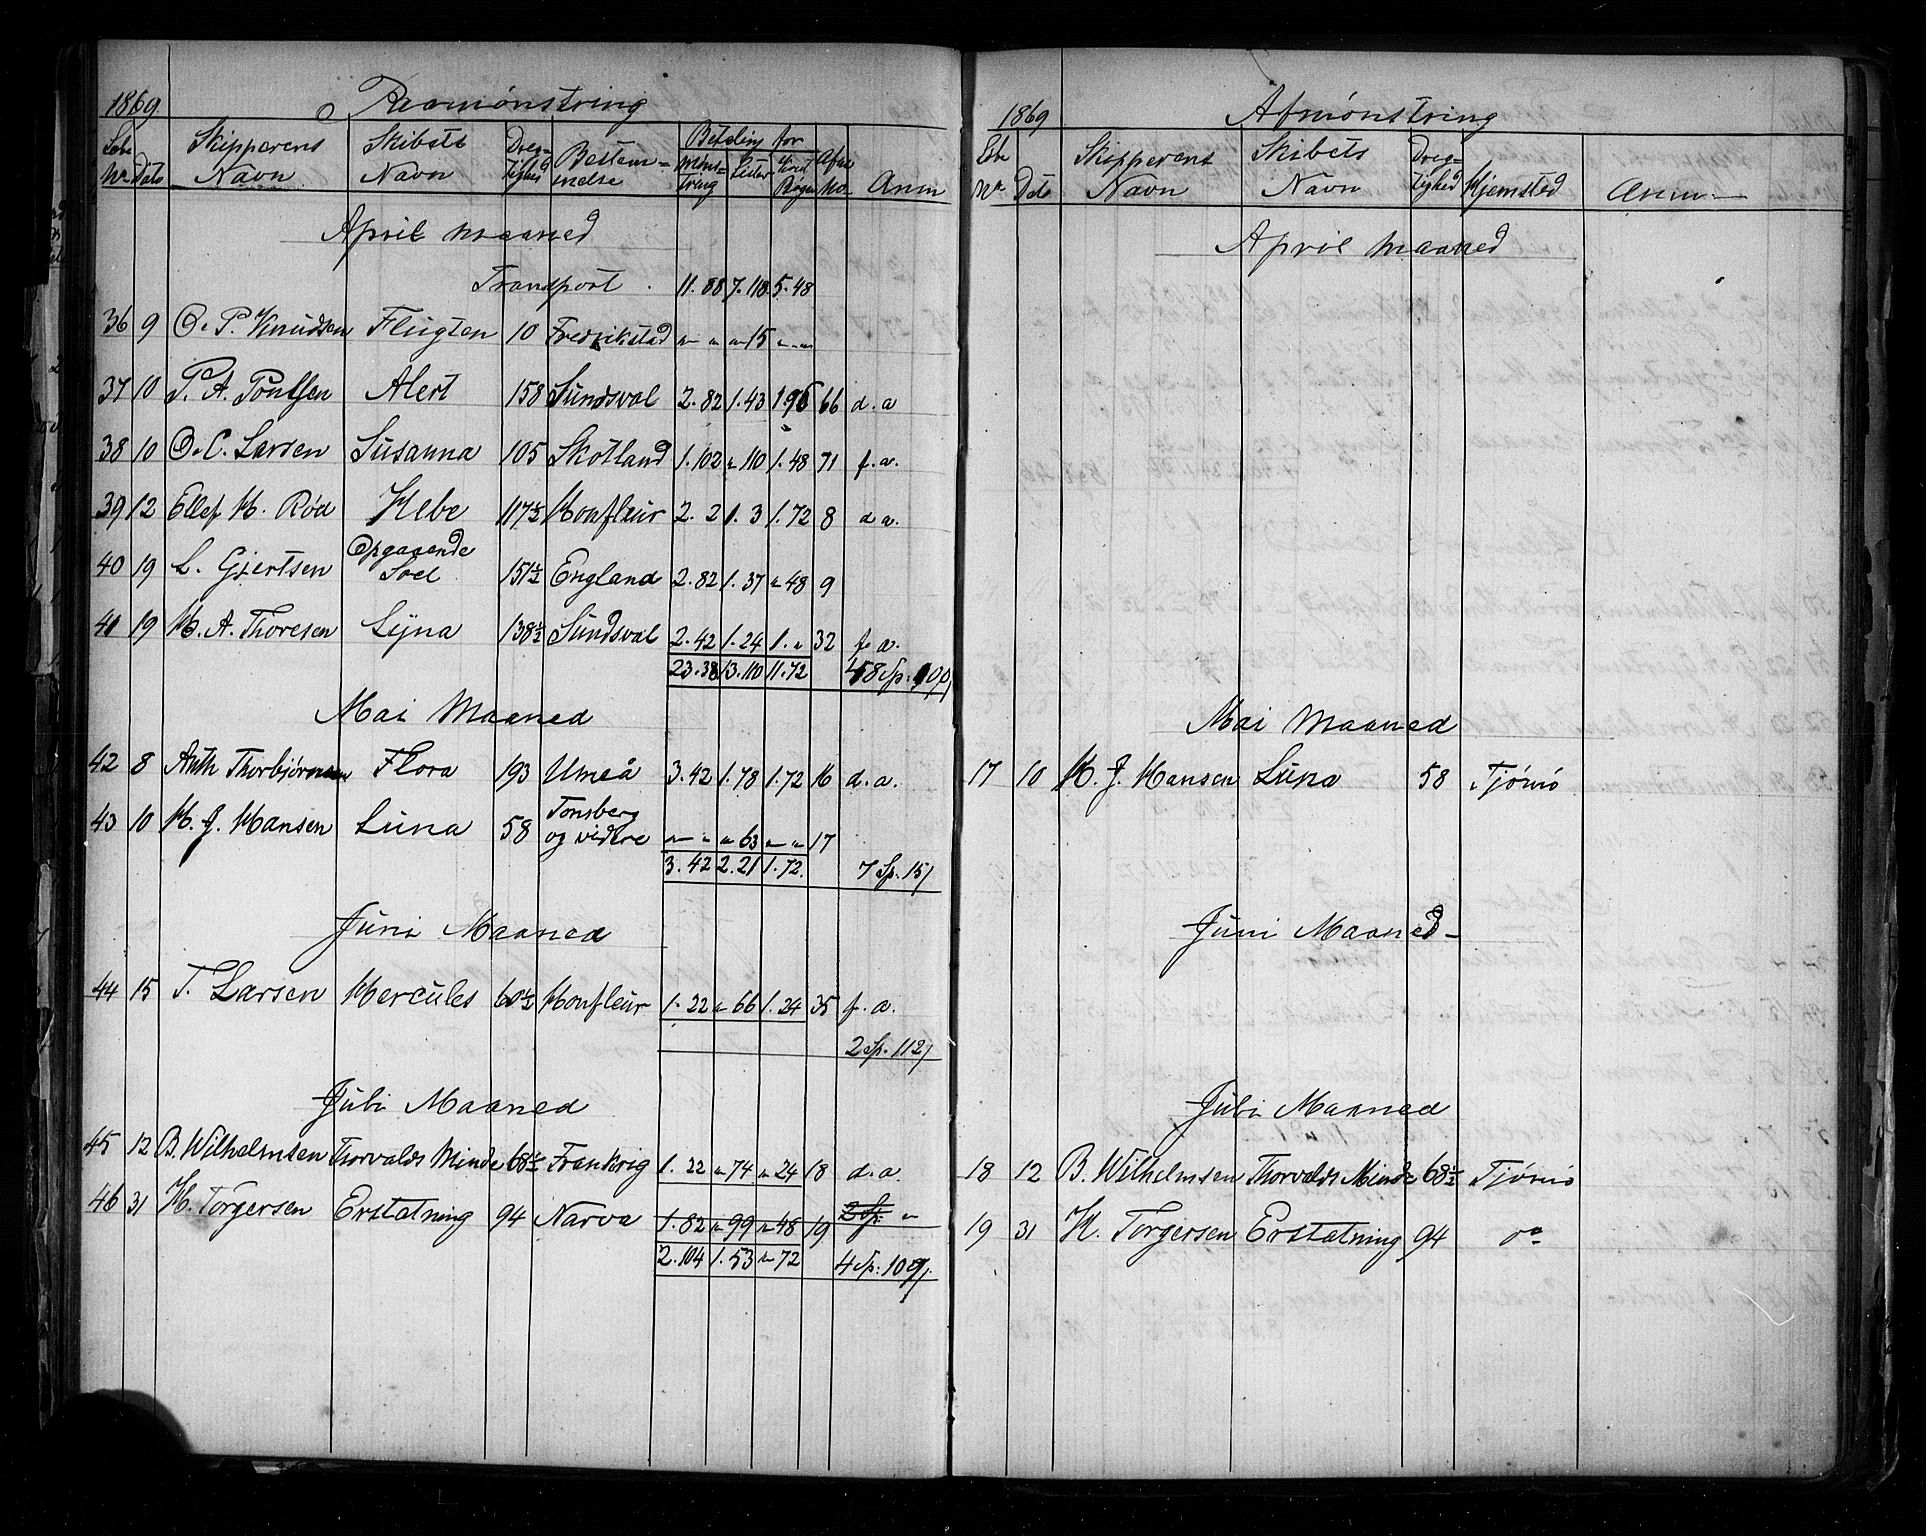 1869. Paamønstring
Løbe No. Dato Skipperens Navn Skibets Navn Dræg-tighed Bestem-melse Betaling for Mønst-ring Lister Bøger No. Anm
April Maaned
Transport . 11.88 7.118 5.48
36 9 O. P. Knudsen Flugten 10 Fredrikstad " " " 15 " "
37 10 P. A. Pontsen Alert 158 Sundsval 2.82 1.43 1.96 66 d. a
38 10 O. C. Larsen Susanna 105 Skotland 1.102 " 110 1.48 71 f. a.
39 12 Ellef H. Rød Hebe 117½ Honfleur 2. 2 1. 3 1.72 8 d a.
40 19 L. Gjertsen Opgaaende Soel 151½ England 2.82 1.37 " 48 9
41 19 H. A. Thoresen Lyna 138½ Sundsval 2.42 1.24 1. " 32 f. a.
23.38 13.110 11.72 48 Sp. 100ß
Mai Maaned
42 8 Anth Thorbjørnsen Flora 193 Umeå 3.42 1.78 1.72 16 d. a.
43 10 H. J. Hansen Luna 58 Tonsberg og videre " " " 63 " " 17
3.42 2.21 1.72. 7 Sp. 15ß
Juni Maaned
44 15 T. Larsen Hercules 60½ Honfleur 1. 22 " 66 1. 24 35 f. a.
2 Sp. 112ß
Juli Maaned
45 12 B. Wilhelmsen Thorvalds Minde 68½ Frankrig 1. 22 " 74 " 24 18 d. a.
46 31 H. Torgersen Erstatning 94 Narva 1.82 " 99 " 48 19 2 Sp. "
2.104 1.53 " 72 4 Sp: 109ß.
1869 Afmønstring
Lbe No. Dato Skipperens Navn Skibets Navn Dræg-tighed Hjemsted Anm
April Maaned
Mai Maaned
17 10 H. J. Hansen Luna 58 Tjømø
Juni Maaned
Juli Maaned
18 12 B. Wilhelmsen Thorvalds Minde 68½ Tjømø
19 31 H. Torgersen Erstatning 94 do